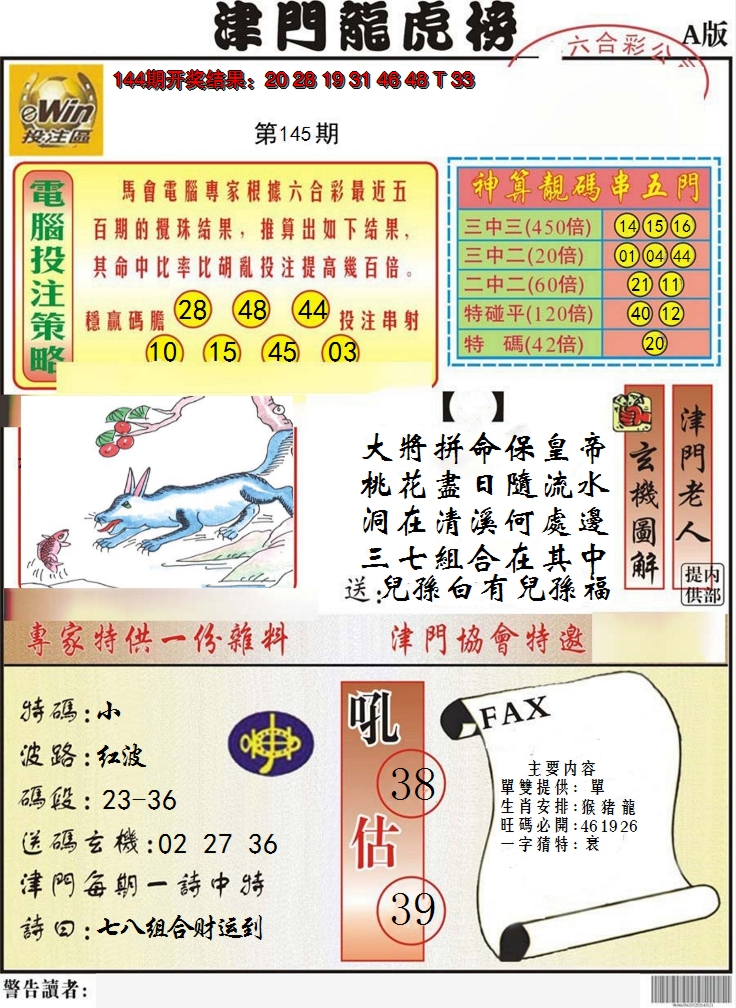 津門龍虎榜
六合彩公
A版
eWin
投注區
144期开奖结果：20 28 19 31 46 48 T 33
第145期
電腦投注策略
馬會電腦專家根據六合彩最近五
百期的攪珠结果，推算出如下结果，
其命中比率比胡亂投注提高幾百倍。
穩赢碼膽 28 48 44 投注串射
10 15 45 03
神算靚碼串五門
三中三(450倍) 14 15 16
三中二(20倍) 01 04 44
二中二(60倍) 21 11
特碰平(120倍) 40 12
特 碼(42倍) 20
【 】
大將拼命保皇帝
桃花盡日隨流水
洞在清溪何處邊
三七組合在其中
送：兒孫自有兒孫福
玄機圖解
津門老人
内部提供
專家特供一份雜料
津門協會特邀
特碼：小
波路：红波
碼段：23-36
送碼玄機：02 27 36
津門每期一詩中特
詩曰：七八组合财运到
吼
38
估
39
FAX
主要内容
單雙提供：單
生肖安排：猴猪龍
旺碼必開：461926
一字猜特：衰
警告讀者：